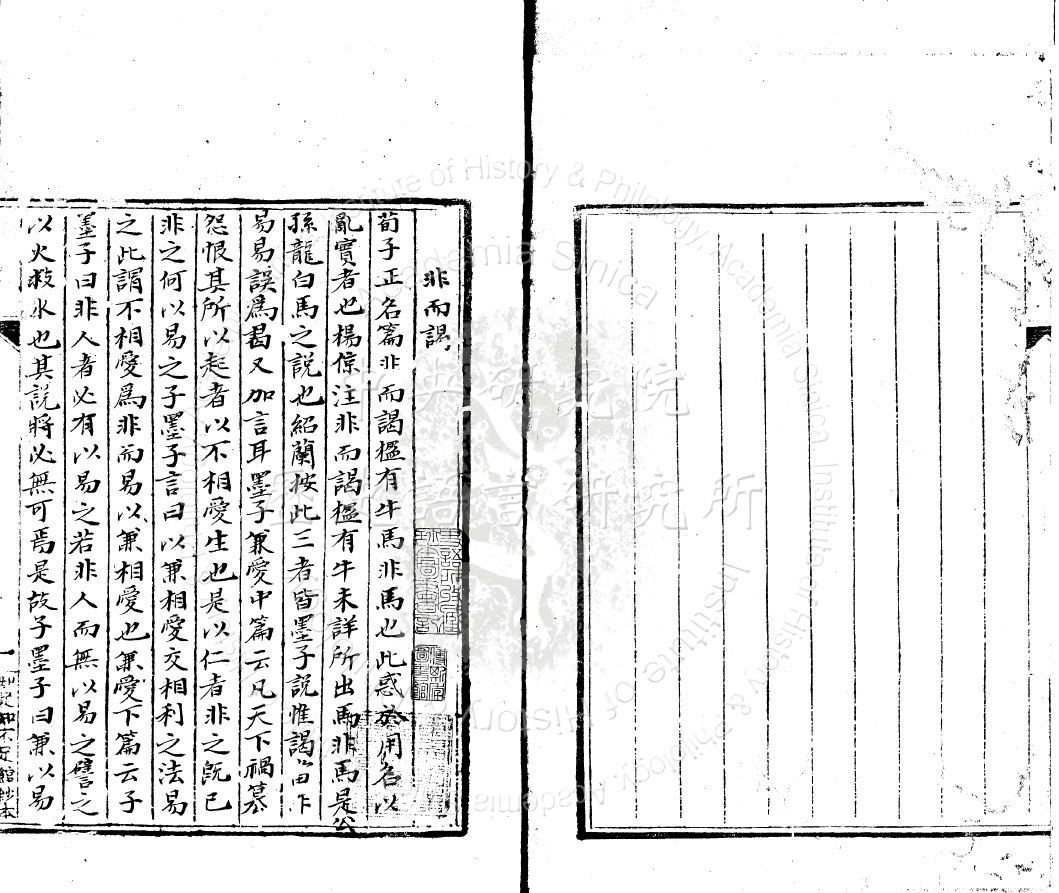 非而謁
荀子正名篇非而謁楹有牛馬非馬也此惑於用名以
亂實者也楊倞注非而謁楹有牛未詳所出馬非馬是公
孫龍白馬之說也紹蘭按此三者皆墨子說惟謁當作
易易誤爲曷又加言耳墨子兼愛中篇云凡天下禍篡
怨恨其所以起者以不相愛生也是以仁者非之既已
非之何以易之子墨子言曰以兼相愛交相利之法易
之此謂不相愛爲非而易以兼相愛也兼愛下篇云子
墨子曰非人者必有以易之若非人而無以易之譬之
以火救水也其說將必無可焉是故子墨子曰兼以易
一
知足知不足館鈔本
中央研究院
歷史語言研究所
Institute of History & Philology, Academia Sinica